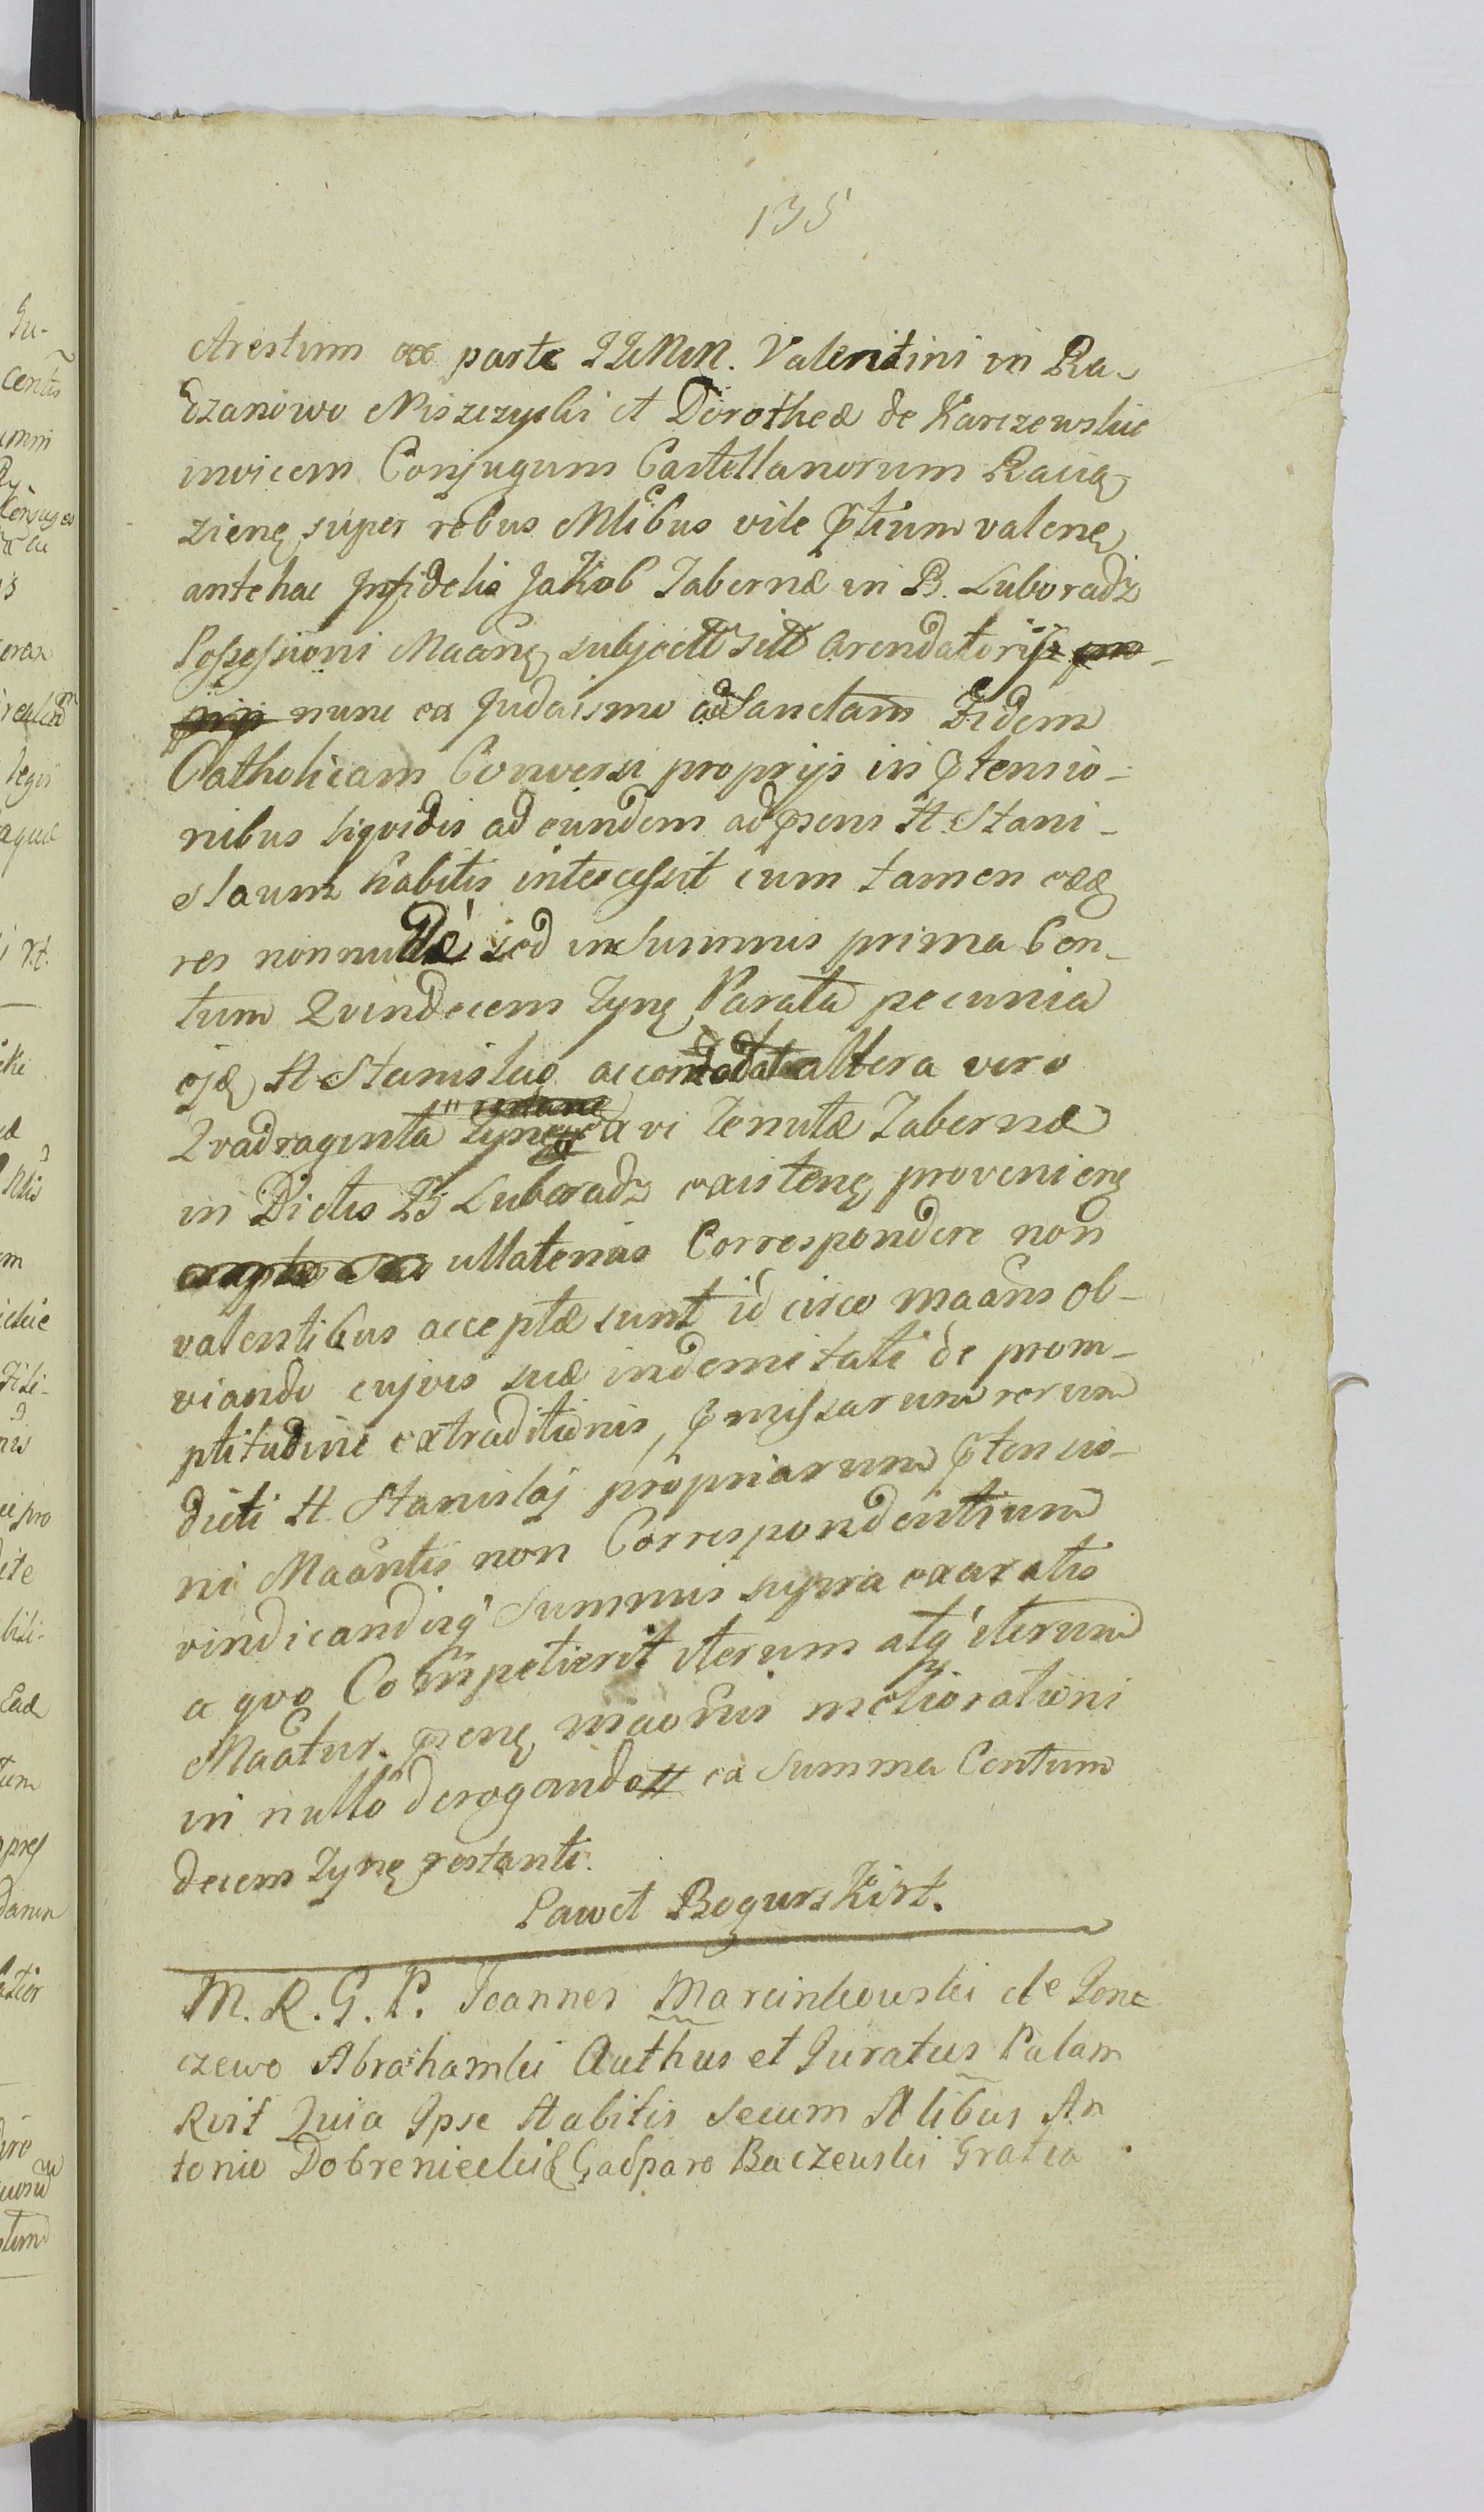 135
Arestum ex parte IIMM. Valentini in Ra-
dzanowo Niszczyski et Dorotheæ de Karczewskie
invicem Conjugum Castellanorum Racią
zienę super rebus Mlibus vile ptium valenę
antehac Infidelis Jakob Tabernæ in B. Luboradz
Possessioni Maanę subjectt sitt Arendatoris
nunc ex Judaismo ad Sanctam Fidem
Catholicam Conversi proprijs in ptensio-
nibus liqvidis ad eundem adpsens H. Stani-
slaum habitis intercessit cum tamen eæę
res nonnullæ sed in Summis prima Cen-
tum Qvindecem Tynę Parata pecunia
ejæ H Stanislao altera vero
Qvadraginta Tynę a vi Tenutæ Tabernæ
in Dictis B Luboradz existenę provenienę
ullatenus Correspondere non
valentibus acceptæ sunt id circo maans ob-
viando cujvis suæ indemitati de prom-
ptitudine extraditionis, pmissarum rerum
dicti H Stanislaj propriarum ptensio-
ni Maantis non Correspondentium
vindicandisq Summis supra exaratis
a qvo Competierit iterum atq iterum
Maatur. psenę maonis meliorationi
in nullo derogando ex Summa Centum
decem Tynę restanti.
Pawet Bogurski rt.
M. R. G. P. Joannes Marcinkowski de Gone
czewo Abrahamki Authus et Juratus Palam
Rvit Quia Ipse Habitis Secum Nlibus An
tonio Dobreniecki & Gasparo Baczewski Gratia